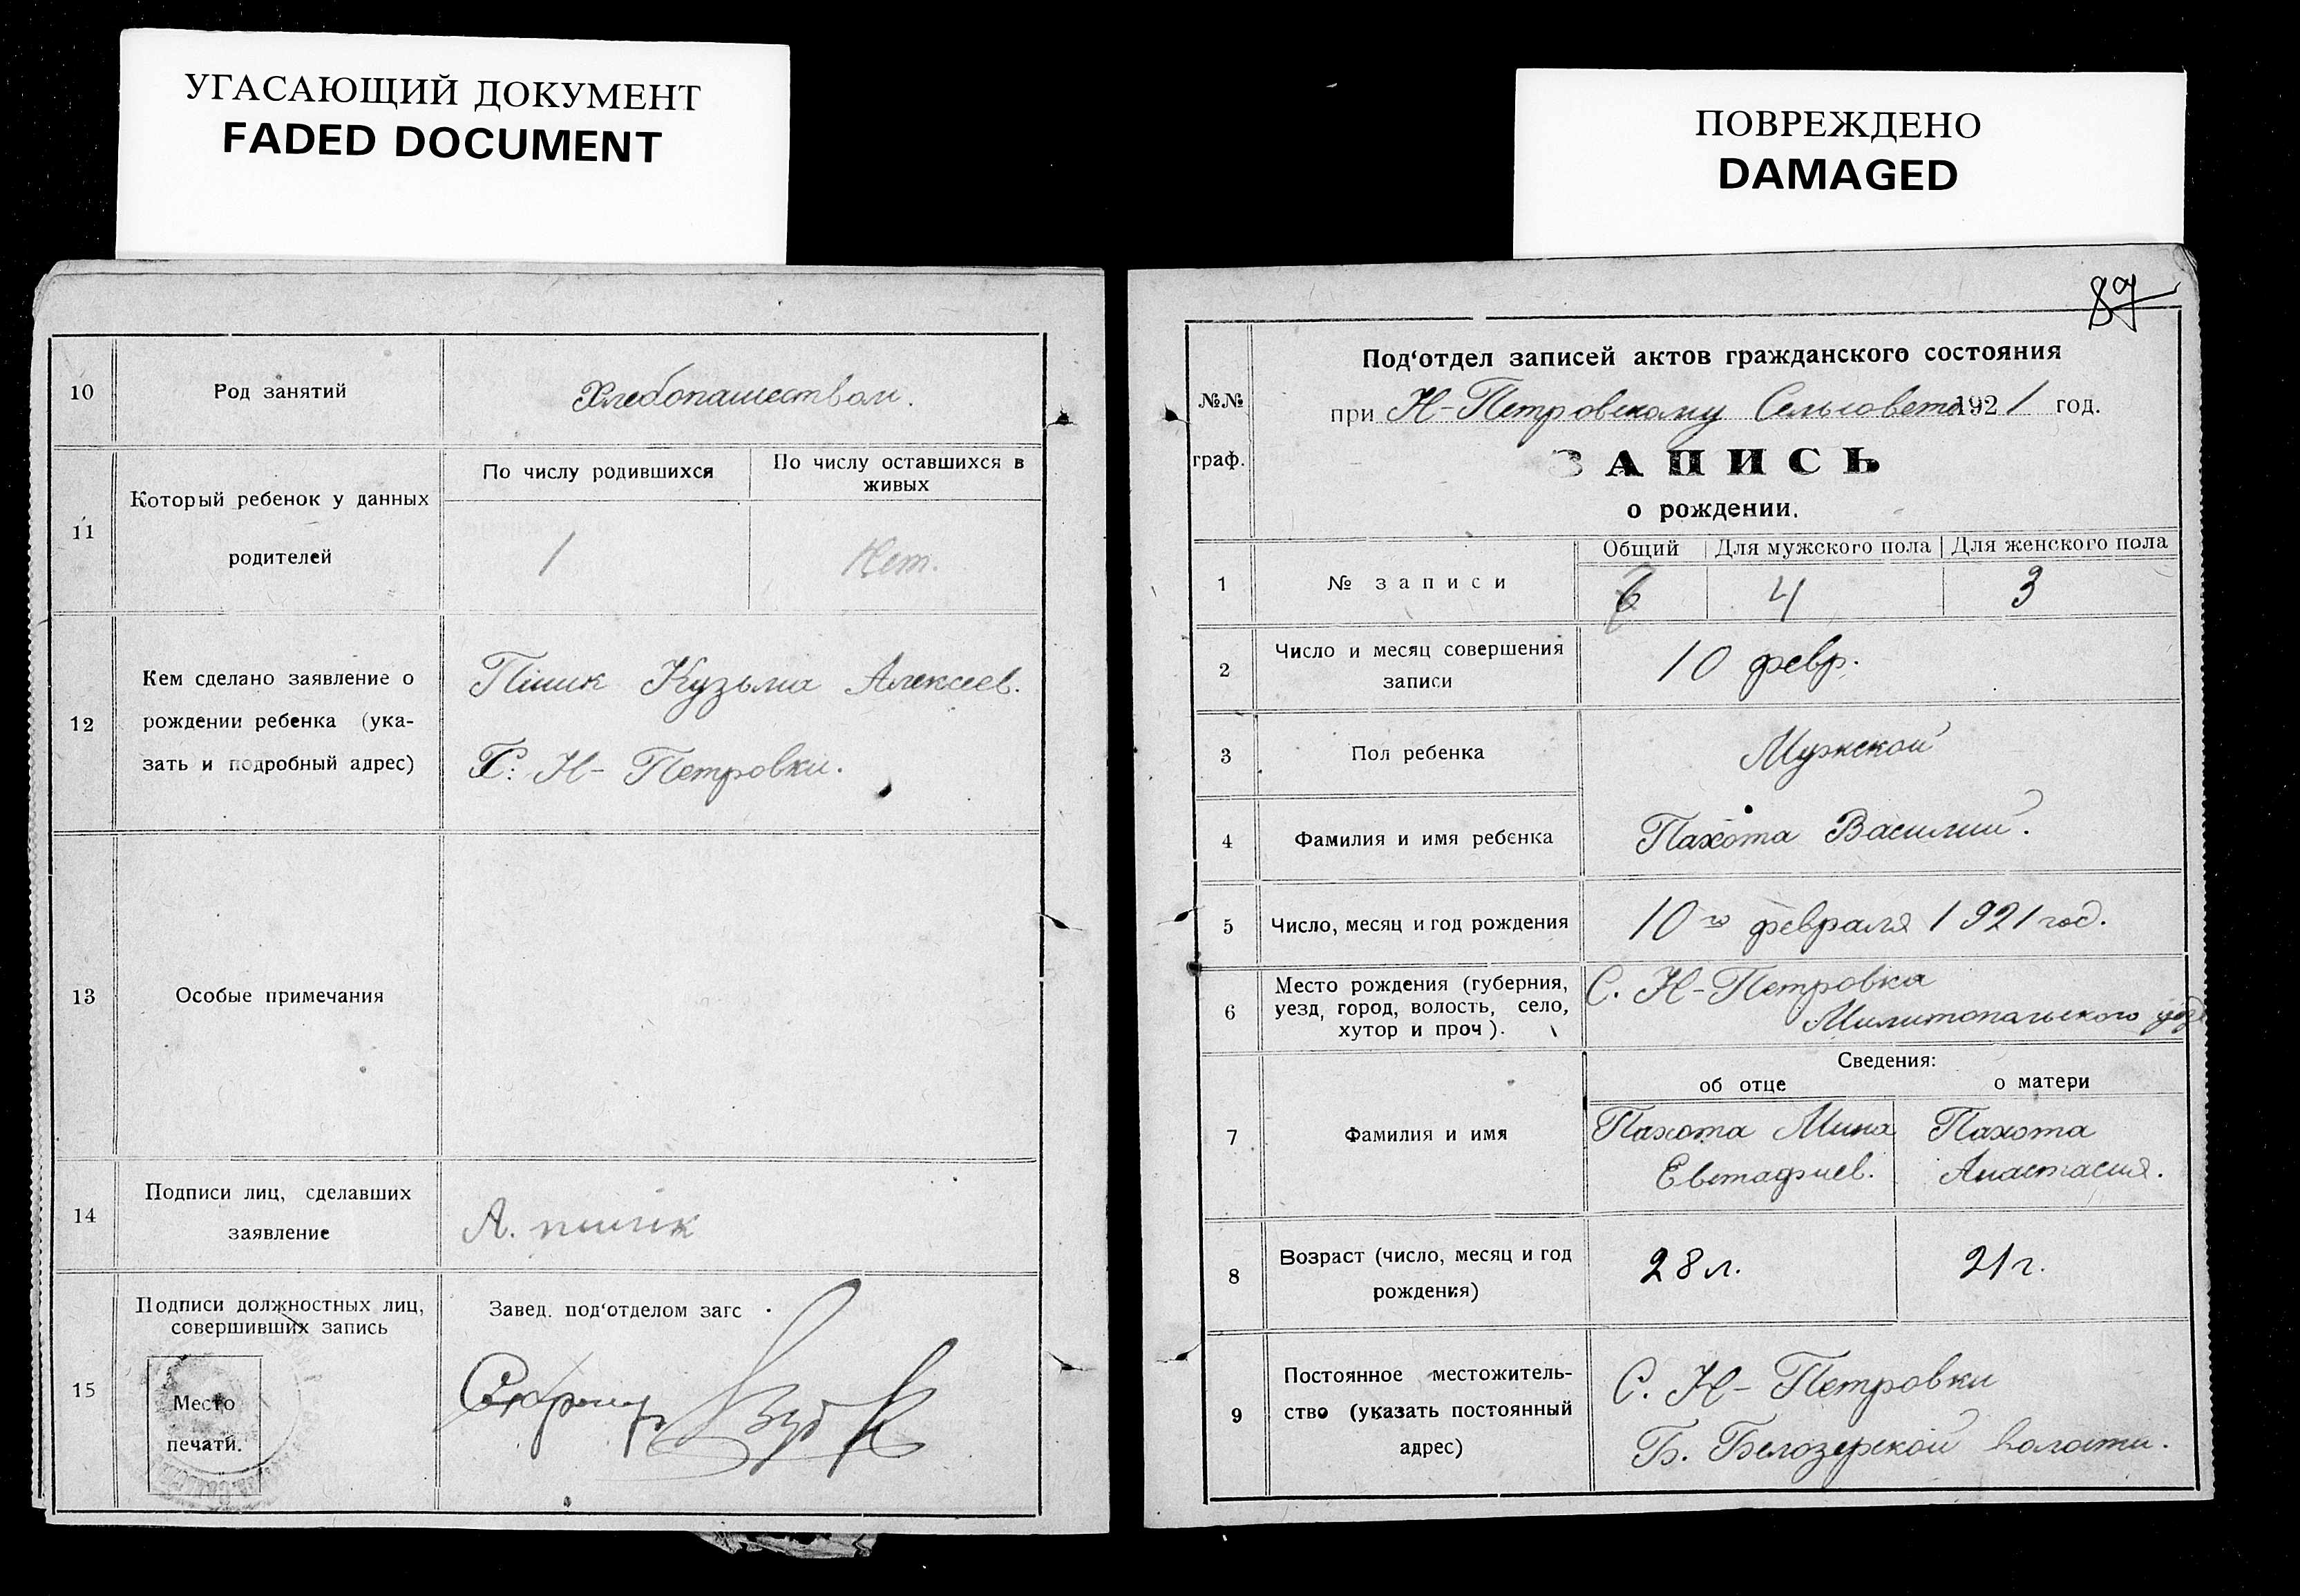 УГАСАЮЩИЙ ДОКУМЕНТ
FADED DOCUMENT
10
Род занятий
Хлебопашеством.
11
Который ребенок у данных
родителей
По числу родившихся
По числу оставшихся в
живых
1
Нет.
12
Кем сделано заявление о
рождении ребенка (ука-
зать и подробный адрес)
Пшик Кузьма Алексеев.
С. Н-Петровки.
13
Особые примечания
14
Подписи лиц, сделавших
заявление
А. пшик
15
Подписи должностных лиц,
совершивших запись
Место
печати.
Завед. под‘отделом загс
ПОВРЕЖДЕНО
DAMAGED
89
№№
граф.
Под‘отдел записей актов гражданского состояния
при Н-Петровскому Сельсовета 1921 год.
ЗАПИСЬ
о рождении.
1
№ записи
Общий
Для мужского пола
Для женского пола
6
4
3
2
Число и месяц совершения
записи
10 февр.
3
Пол ребенка
Мужской
4
Фамилия и имя ребенка
Пахота Василий.
5
Число, месяц и год рождения
10го февраля 1921 год.
6
Место рождения (губерния,
уезд, город, волость, село,
хутор и проч).
С. Н-Петровка
Милитопольского уезд
Сведения:
об отце
о матери
7
Фамилия и имя
Пахота Мина
Евтафиев.
Пахота
Анастасия.
8
Возраст (число, месяц и год
рождения)
28 л.
21 г.
9
Постоянное местожитель-
ство (указать постоянный
адрес)
С. Н-Петровки
Б. Белозерской волости.